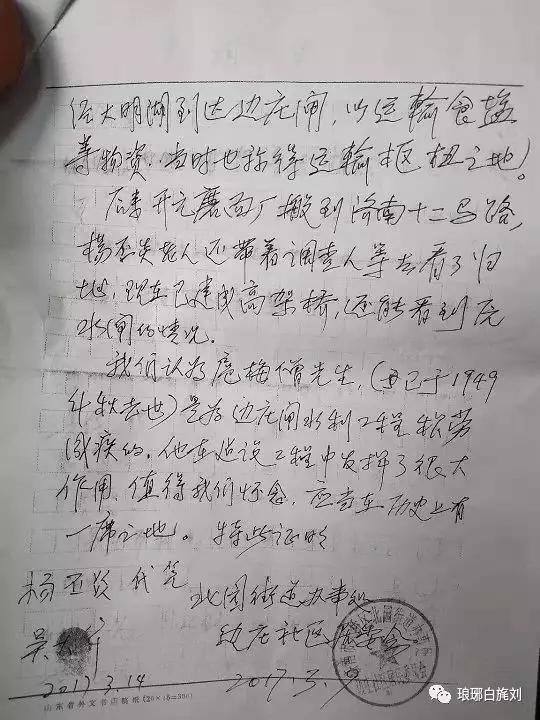 经大明湖到达边庄闸,以运输食盐
等物资,当时也称得运输枢纽之地。
后来开元磨面厂搬到济南十二马路,
杨丕炎老人还带着调查人等去看了旧
地,现在已建成高架桥,还能看到厄
水闸的情况。
我们认为扈梅僧先生,(更已于1949
年秋去世)是为边庄闸水利工程积劳
成疾的,他在建设工程中发挥了很大
作用,值得我们怀念,应当在历史上有
一席之地。特此证明
杨丕 代笔
北园街道办事处
边庄社区居委会
吴
2017.3.14
2017.3.9
山东省外文书店稿纸(20×15=300)
琅琊白旄刘